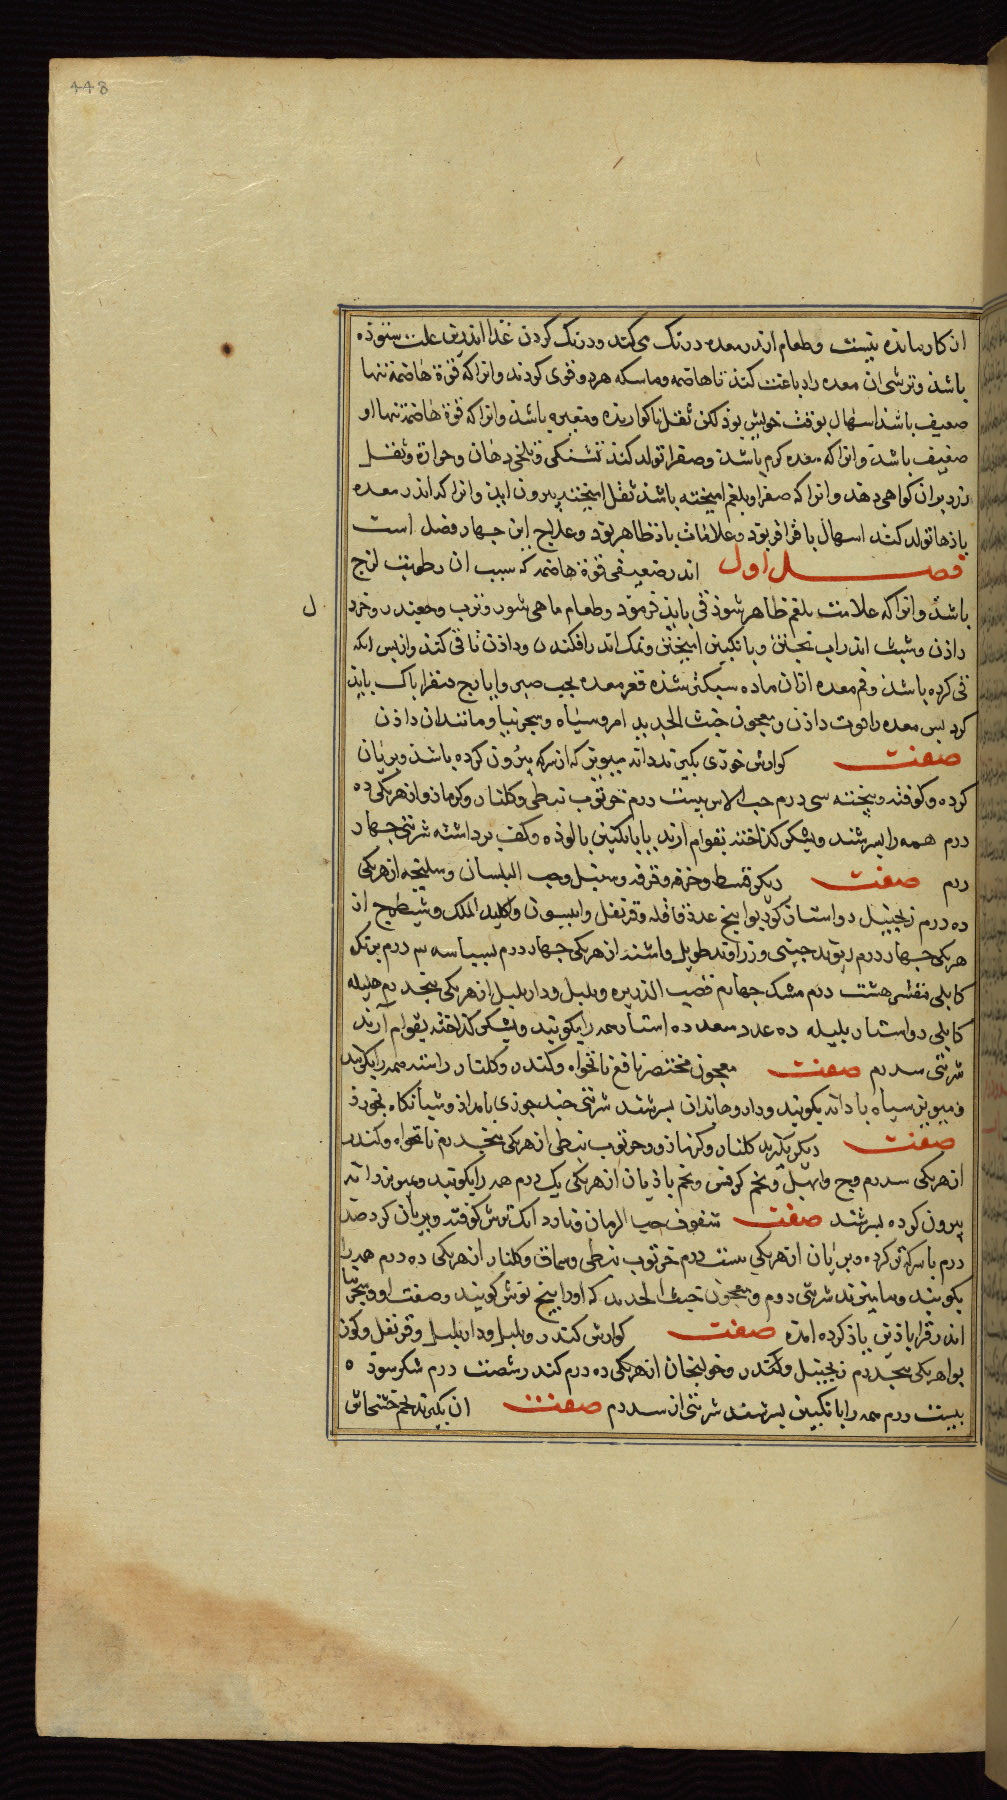 448
ان کار مانده نیست و طعام اندر معده درنک می کند و درنک کردن غذا اندرین علت ستوده
باشد و ترشی ان معده را دباغت کند تا هاضمه و ماسکه هردو قوی کردند و انرا که قوة هاضمه تنها
ضعیف باشد اسهال بوقت خویش بود لکن ثقل ناکوارنده و متغیره باشد و انرا که قوة هاضمه تنها او
ضعیف باشد و انرا که معده کرم باشد و صفرا تولد کند تشنکی و تلخی دهان و حرارة و ثقل
زرد بران کواهی دهد و انرا که صفرا و بلغم امیخته باشد ثقل امیخته بیرون اید و انرا که اندر معده
باذها تولد کند اسهال با قراقر بود و علامات باذ ظاهر بود و علاج این چهار فصل است
فصل اول اندر ضعیفی قوة هاضمه که سبب ان رطوبت لزج
باشد و انرا که علامت بلغم ظاهر شود قی باید فرمود و طعام ماهی شور و ترب و چغندر و خرد
ل
داذن و شبث اندر اب پختن و با انکبین امیختن و نمک اندر افکندن و داذن تا قی کند و از پس انکه
قی کرده باشد و فم معده ازان ماده سبکتر شده قعر معده بحب صبر و ایارج فیقرا باک باید
کرد پس معده را قوت داذن و معجون خبث الحدید امروسیاه و سجرنیا و مانند ان داذن
صفت کوارش خوزی بکیرند دانه میویز که از سرکه بیرون کرده باشد و بریان
کرده و کوفته و بیخته سی درم حب الاس بیست درم خرنوب نبطی و کلنار و کزمازو از هر یکی ده
درم همه را بسرشند و بشکر کداخته بقوام ارند یا با انکبین بالوذه و کف برداشته شربتی چهار
درم صفت دیکر قسط و خرفه و قرفه و سنبل و حب البلسان و سلیخه از هر یکی
ده درم زنجبیل دو استار جوزبوا پنج عدد قاقله و قرنفل و انیسون و اکلیل الملک و شیطرج از
هر یکی چهار درم ریوند چینی و زراوند طویل و اشنه از هر یکی چهار درم بسباسه سه درم برنک
کابلی مقشر هشت درم مشک چهارم قصب الذریره و بلبل و داربلبل از هر یکی پنج درم هلیله
کابلی دو استار بلیله ده عدد سعد ده استار همه را بکوبند و بشکر کداخته بقوام آرند
شربتی سه درم صفت معجون مختصر نافع نانخواه و کندر و کلنار راسته همه را بکوبند
و میویز سیاه با دانه بکوبند و داروها بدان بسرشند شربتی چند جوزی بامداذ و شبانکاه بخورذ
صفت دیکر بکیرند کلنار و کزمازو و خرنوب نبطی از هر یکی پنج درم نانخواه و کندر
از هر یکی سه درم وج و ابهل و تخم کرفس و تخم باذیان از هر یکی یک درم همه را بکوبند و میویز دانه
بیرون کرده بسرشند صفت سفوف حب الرمان ناردانک ترش کوفته و بریان کرده صد
درم با سرکه تر کرده و بریان از هر یکی بیست درم خرنوب نبطی و سماق و کلنار از هر یکی ده درم همه را
بکوبند و بیامیزند شربتی دو درم و معجون خبث الحدید که اورا پنج نوش کویند و صفت او و سجرنیا
اندر قراباذین یاذ کرده امده صفت کوارش کندر و بلبل و داربلبل و قرنفل و کوز
بوا هر یکی پنج درم زنجبیل و کندر و خولنجان از هر یکی ده درم کندر شصت درم شکر سوده
بیست درم همه را با انکبین بسرشند شربتی از سه درم صفت ان بکیرند تخم خشخاش